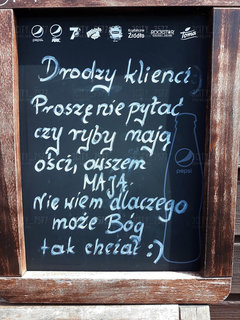 pepsi
7
Krystaliczne
Źródło
ROCKSTAR
Toma
Drodzy klienci
Proszę nie pytać
czy ryby mają
ości, owszem
MAJĄ.
Nie wiem dlaczego
może Bóg
tak chciał :)
pepsi